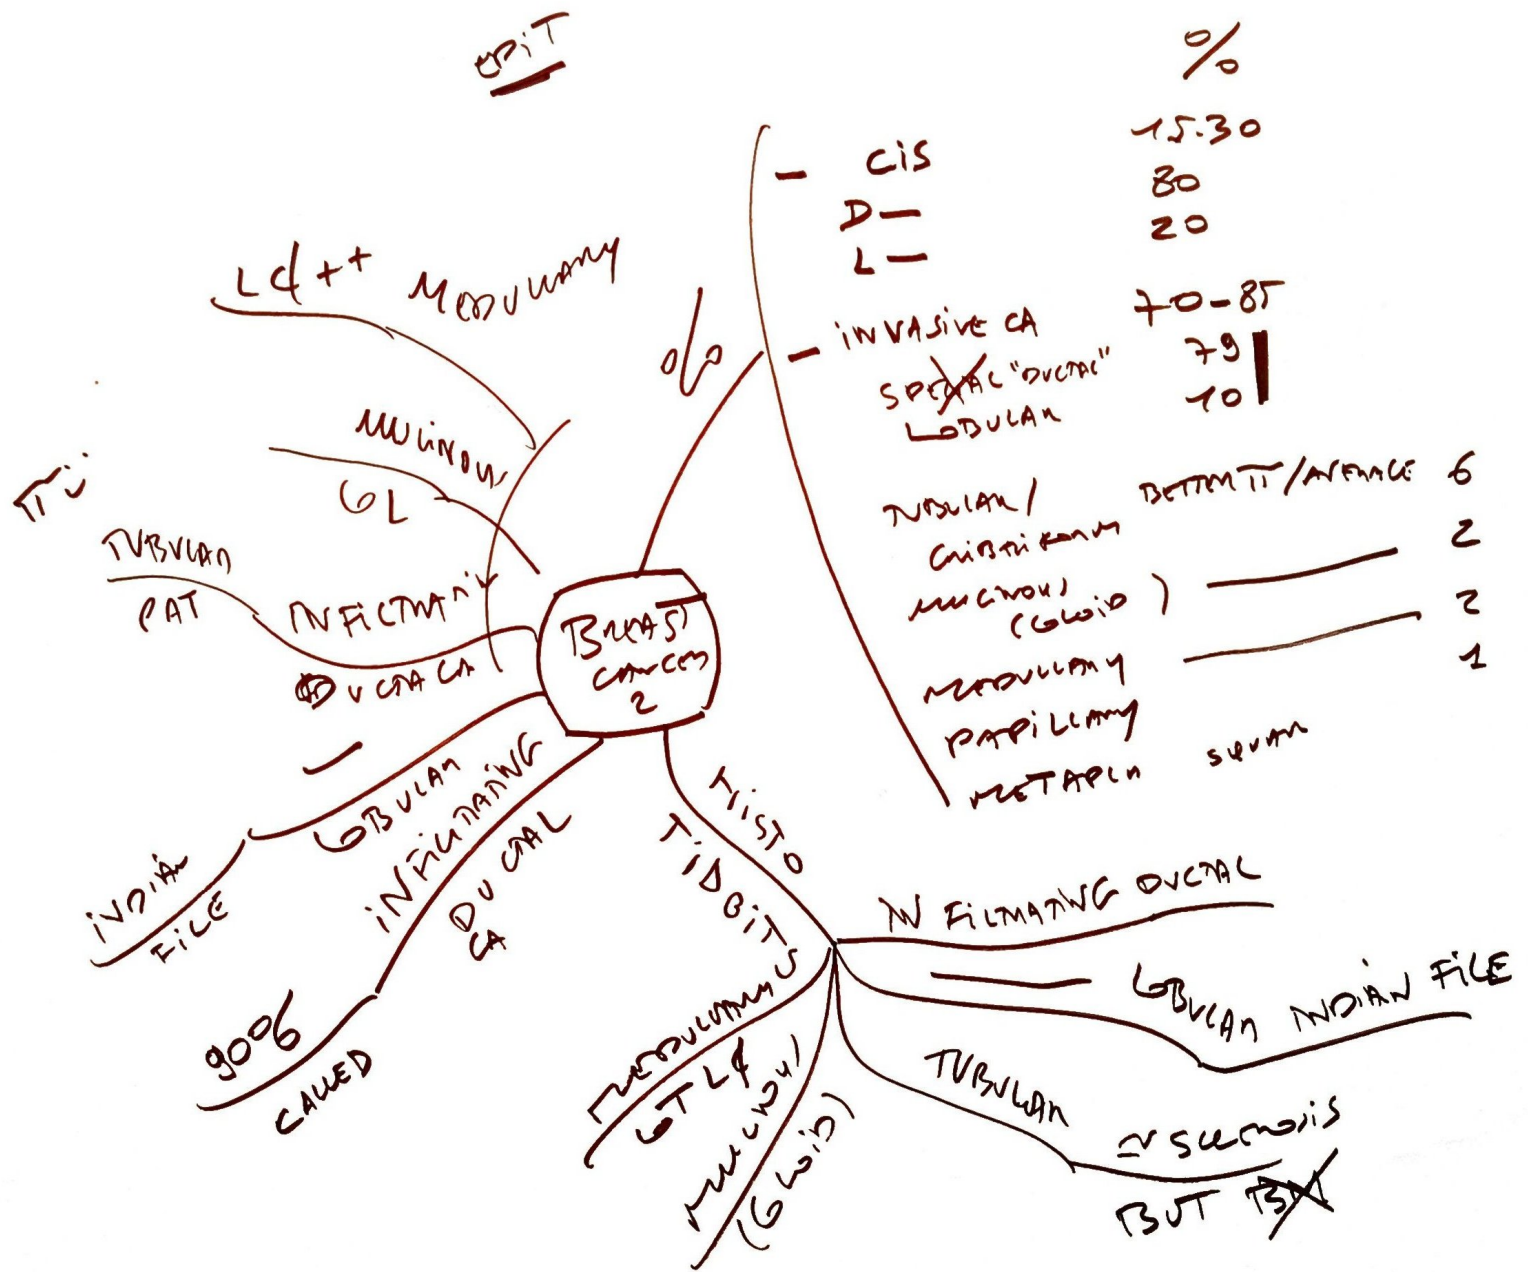 EPiT
%
- CiS 15-30
D — 80
L — 20
- iNVASiVE CA 70-85
SPECIAL "DUCTAL" 79
LOBULAR 10
TUBULAR / BETTER π/AVERAGE 6
CRiBRiFORM
MUCiNOUS 2
(COLOiD)
MEDULLARY 2
PAPiLLARY 1
METAPLA SQUAM
%
LC ++ MEDULLARY
MUCiNOUS
COL
TUBULAR
PAT
iNFiLTRATiN
DUCTAL CA
BREAST
CANCER
2
— LOBULAR
iNDiAN
FiLE
iNFiLTRATiNG
DUCTAL
CA
90%
CALLED
HiSTO
TiDBiTS
iNFiLTRATiNG DUCTAL
— LOBULAR iNDiAN FiLE
TUBULAR
≃ SCLEROSiS
BUT BM
MUCiNOUS
(COLOiD)
MEDULLARY
LOT LC